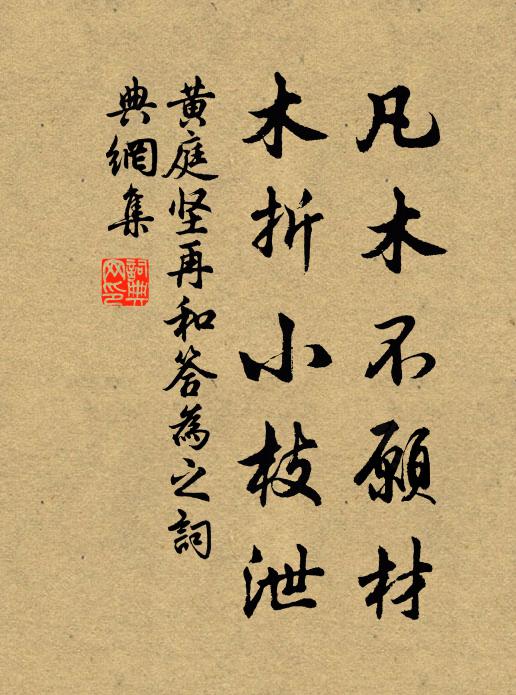 凡木不願材
木折小枝泄
黄庭坚再和答為之詞
典網集
詞典
网印